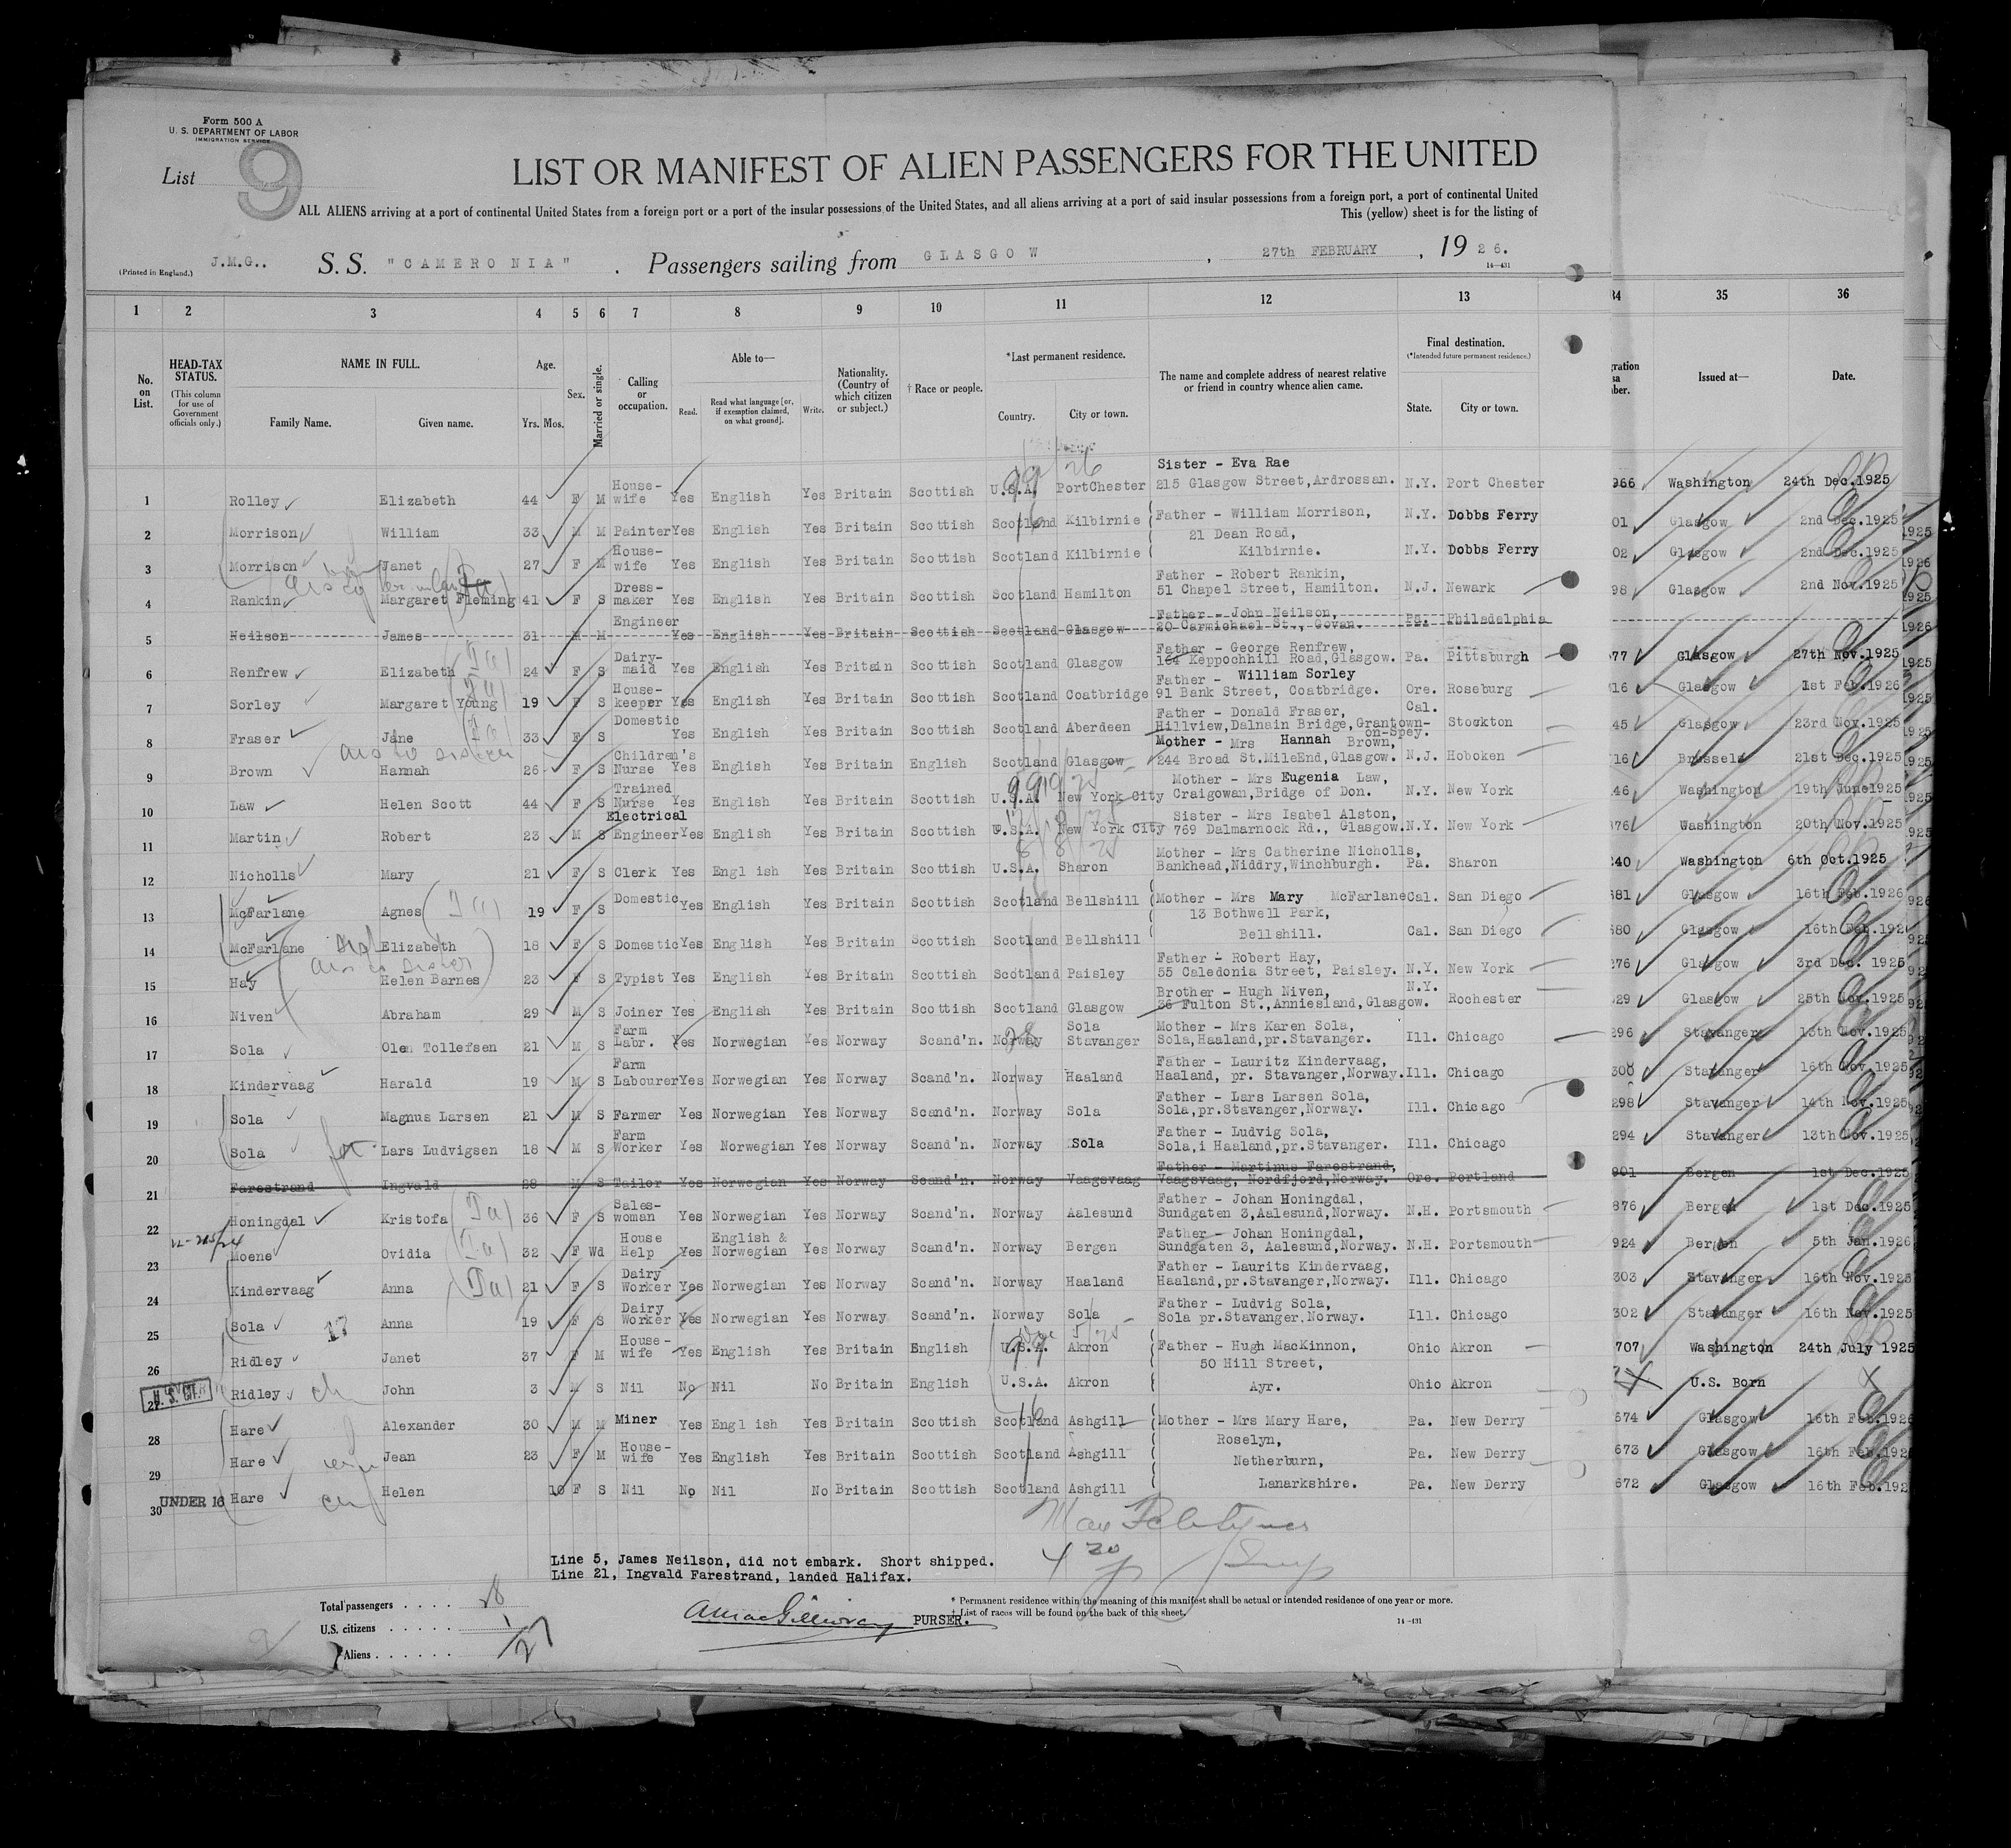 Form 500 A
U. S. DEPARTMENT OF LABOR
IMMIGRATION SERVICE
List 9
LIST OR MANIFEST OF ALIEN PASSENGERS FOR THE UNITED
ALL ALIENS arriving at a port of continental United States from a foreign port or a port of the insular possessions of the United States, and all aliens arriving at a port of said insular possessions from a foreign port, a port of continental United
This (yellow) sheet is for the listing of
(Printed in England.) J.M.G.. S. S. "CAMERONIA" . Passengers sailing from GLASGOW , 27th FEBRUARY , 19 26.
14—431
1 2 3 4 5 6 7 8 9 10 11 12 13 34 35 36
No. on List.
HEAD-TAX STATUS. (This column for use of Government officials only.)
NAME IN FULL. Family Name. Given name.
Age. Yrs. Mos.
Sex.
Married or single.
Calling or occupation.
Able to— Read. Read what language [or, if exemption claimed, on what ground]. Write.
Nationality. (Country of which citizen or subject.)
† Race or people.
*Last permanent residence. Country. City or town.
The name and complete address of nearest relative or friend in country whence alien came.
Final destination. (*Intended future permanent residence.) State. City or town.
Issued at— Date.
1 Rolley Elizabeth 44 F M House-wife Yes English Yes Britain Scottish U.S.A. PortChester Sister - Eva Rae 215 Glasgow Street,Ardrossan. N.Y. Port Chester 966 Washington 24th Dec.1925
2 Morrison William 33 M M Painter Yes English Yes Britain Scottish Scotland Kilbirnie Father - William Morrison, N.Y. Dobbs Ferry 01 Glasgow 2nd Dec.1925
21 Dean Road,
3 Morrison Janet 27 F M House-wife Yes English Yes Britain Scottish Scotland Kilbirnie Kilbirnie. N.Y. Dobbs Ferry 02 Glasgow 2nd Dec.1925
4 Rankin Margaret Fleming 41 F S Dress-maker Yes English Yes Britain Scottish Scotland Hamilton Father - Robert Rankin, 51 Chapel Street, Hamilton. N.J. Newark 98 Glasgow 2nd Nov.1925
5 Neilson James 31 M M Engineer Yes English Yes Britain Scottish Scotland Glasgow Father - John Neilson, 20 Carmichael St., Govan. Pa. Philadelphia
6 Renfrew Elizabeth 24 F S Dairy-maid Yes English Yes Britain Scottish Scotland Glasgow Father - George Renfrew, 164 Keppochhill Road,Glasgow. Pa. Pittsburgh 77 Glasgow 27th Nov.1925
7 Sorley Margaret Young 19 F S House-keeper Yes English Yes Britain Scottish Scotland Coatbridge Father - William Sorley 91 Bank Street, Coatbridge. Ore. Roseburg 16 Glasgow 1st Feb.1926
8 Fraser Jane 33 F S Domestic Yes English Yes Britain Scottish Scotland Aberdeen Father - Donald Fraser, Hillview,Dalnain Bridge,Grantown-on-Spey. Cal. Stockton 45 Glasgow 23rd Nov.1925
9 Brown Hannah 26 F S Children's Nurse Yes English Yes Britain English Scotland Glasgow Mother - Mrs Hannah Brown, 244 Broad St.MileEnd,Glasgow. N.J. Hoboken 716 Brussels 21st Dec.1925
10 Law Helen Scott 44 F S Trained Nurse Yes English Yes Britain Scottish U.S.A. New York City Mother - Mrs Eugenia Law, Craigowan,Bridge of Don. N.Y. New York 146 Washington 19th June1925
11 Martin Robert 23 M S Electrical Engineer Yes English Yes Britain Scottish U.S.A. New York City Sister - Mrs Isabel Alston, 769 Dalmarnock Rd., Glasgow. N.Y. New York 376 Washington 20th Nov.1925
12 Nicholls Mary 21 F S Clerk Yes Engl ish Yes Britain Scottish U.S.A. Sharon Mother - Mrs Catherine Nicholls, Bankhead,Niddry,Winchburgh. Pa. Sharon 240 Washington 6th Oct.1925
13 McFarlane Agnes 19 F S Domestic Yes English Yes Britain Scottish Scotland Bellshill Mother - Mrs Mary McFarlane Cal. San Diego 681 Glasgow 16th Feb.1926
13 Bothwell Park,
14 McFarlane Elizabeth 18 F S Domestic Yes English Yes Britain Scottish Scotland Bellshill Bellshill. Cal. San Diego 680 Glasgow 16th Feb.192
15 Hay Helen Barnes 23 F S Typist Yes English Yes Britain Scottish Scotland Paisley Father - Robert Hay, 55 Caledonia Street, Paisley. N.Y. New York 276 Glasgow 3rd Dec. 1925
16 Niven Abraham 29 M S Joiner Yes English Yes Britain Scottish Scotland Glasgow Brother - Hugh Niven, 36 Fulton St.,Anniesland,Glasgow. N.Y. Rochester 29 Glasgow 25th Nov.1925
17 Sola Olen Tollefsen 21 M S Farm Labr. Yes Norwegian Yes Norway Scand'n. Norway Sola Stavanger Mother - Mrs Karen Sola, Sola,Haaland,pr.Stavanger. Ill. Chicago 296 Stavanger 13th Nov.1925
18 Kindervaag Harald 19 M S Farm Labourer Yes Norwegian Yes Norway Scand'n. Norway Haaland Father - Lauritz Kindervaag, Haaland, pr. Stavanger,Norway. Ill. Chicago 300 Stavanger 16th Nov.1925
19 Sola Magnus Larsen 21 M S Farmer Yes Norwegian Yes Norway Scand'n. Norway Sola Father - Lars Larsen Sola, Sola,pr.Stavanger,Norway. Ill. Chicago 298 Stavanger 14th Nov.1925
20 Sola Lars Ludvigsen 18 M S Farm Worker Yes Norwegian Yes Norway Scand'n. Norway Sola Father - Ludvig Sola, Sola,i Haaland,pr.Stavanger. Ill. Chicago 294 Stavanger 13th Nov.1925
21 Farestrand Ingvald 28 M S Tailor Yes Norwegian Yes Norway Scand'n. Norway Vaagsvaag Father - Martinus Farestrand, Vaagsvaag, Nordfjord,Norway. Ore. Portland 901 Bergen 1st Dec.1925
22 Honingdal Kristofa 36 F S Sales-woman Yes Norwegian Yes Norway Scand'n. Norway Aalesund Father - Johan Honingdal, Sundgaten 3,Aalesund,Norway. N.H. Portsmouth 876 Bergen 1st Dec.1925
23 Moene Ovidia 32 F Wd House Help Yes English & Norwegian Yes Norway Scand'n. Norway Bergen Father - Johan Honingdal, Sundgaten 3, Aalesund,Norway. N.H. Portsmouth 924 Bergen 5th Jan.1926
24 Kindervaag Anna 21 F S Dairy Worker Yes Norwegian Yes Norway Scand'n. Norway Haaland Father - Laurits Kindervaag, Haaland,pr.Stavanger,Norway. Ill. Chicago 303 Stavanger 16th Nov.1925
25 Sola Anna 19 F S Dairy Worker Yes Norwegian Yes Norway Scand'n. Norway Sola Father - Ludvig Sola, Sola pr.Stavanger,Norway. Ill. Chicago 302 Stavanger 16th Nov.1925
26 Ridley Janet 37 F M House-wife Yes English Yes Britain English U.S.A. Akron Father - Hugh MacKinnon, Ohio Akron 707 Washington 24th July 1925
50 Hill Street,
27 U. S. CIT. Ridley John 3 M S Nil No Nil No Britain English U.S.A. Akron Ayr. Ohio Akron U.S. Born
28 Hare Alexander 30 M M Miner Yes Engl ish Yes Britain Scottish Scotland Ashgill Mother - Mrs Mary Hare, Pa. New Derry 674 Glasgow 16th Feb.1926
Roselyn,
29 Hare Jean 23 F M House-wife Yes English Yes Britain Scottish Scotland Ashgill Netherburn, Pa. New Derry 673 Glasgow 16th Feb.192
30 UNDER 16 Hare Helen 10 F S Nil No Nil No Britain Scottish Scotland Ashgill Lanarkshire. Pa. New Derry 672 Glasgow 16th Feb.192
Line 5, James Neilson, did not embark. Short shipped.
Line 21, Ingvald Farestrand, landed Halifax.
Total passengers . . . . 28
U.S. citizens . . . . . 1
Aliens . . . . . . 27
PURSER.
* Permanent residence within the meaning of this manifest shall be actual or intended residence of one year or more.
† List of races will be found on the back of this sheet.
14—431